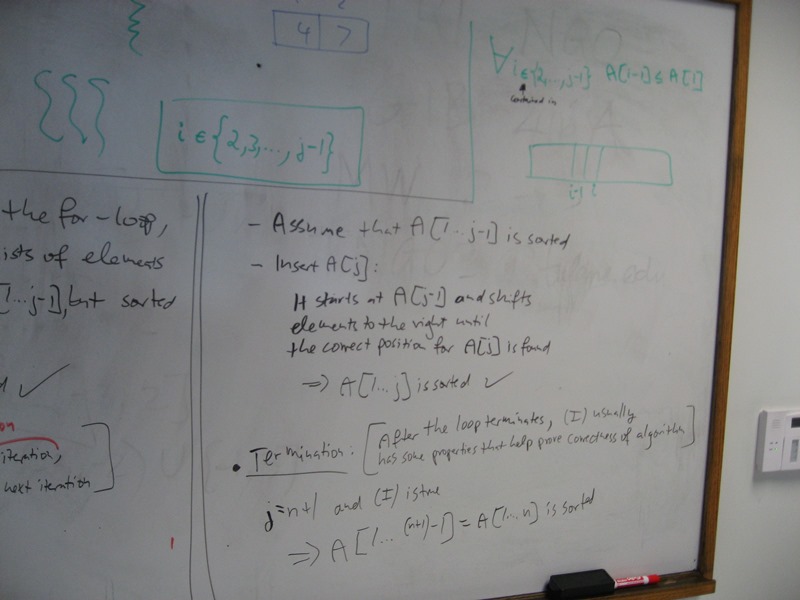 4 7
i ∈ {2,3,..., j-1}
∀i∈{2,...,j-1} A[i-1] ≤ A[i]
contained in
i-1 i
the for-loop,
ists of elements
[1...j-1], but sorted
d ✓
on
iteration,
next iteration
- Assume that A[1...j-1] is sorted
- Insert A[j]:
It starts at A[j-1] and shifts
elements to the right until
the correct position for A[j] is found
⇒ A[1...j] is sorted ✓
• Termination: [After the loop terminates, (I) usually
has some properties that help prove correctness of algorithm]
j=n+1 and (I) is true
⇒ A[1...(n+1)-1] = A[1...n] is sorted